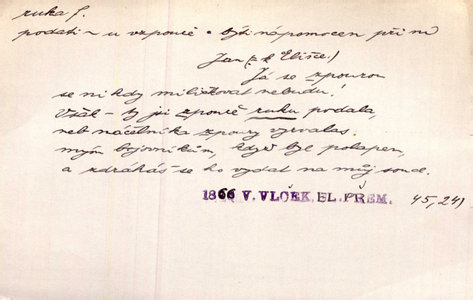 ruka f.
podati ~ u vzpouře • býti nápomocen při ní
Jan (z k Elišce.)
Já se vzpourou
se nikdy miličkovat nebudu!
Však – ty jsi vzpouře ruku podala,
neb náčelníka vzpoury vyrvalas
mým bojovníkům, když byl polapen,
a zdráháš se ho vydat na můj soud.
1866 V. VLČEK, EL. PŘEM. 45, 241